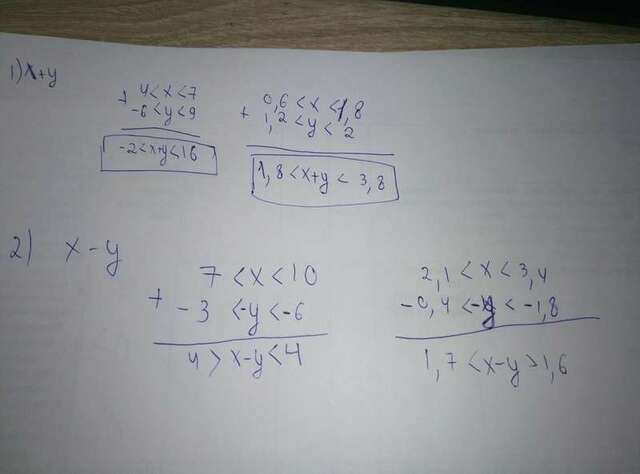 1) x+y
+ 4<x<7
-6<y<9
-2<x+y<16
+ 0,6<x<1,8
1,2<y<2
1,8<x+y<3,8
2) x-y
+ 7<x<10
-3<-y<-6
4>x-y<4
2,1<x<3,4
-0,4<-y<-1,8
1,7<x-y>1,6